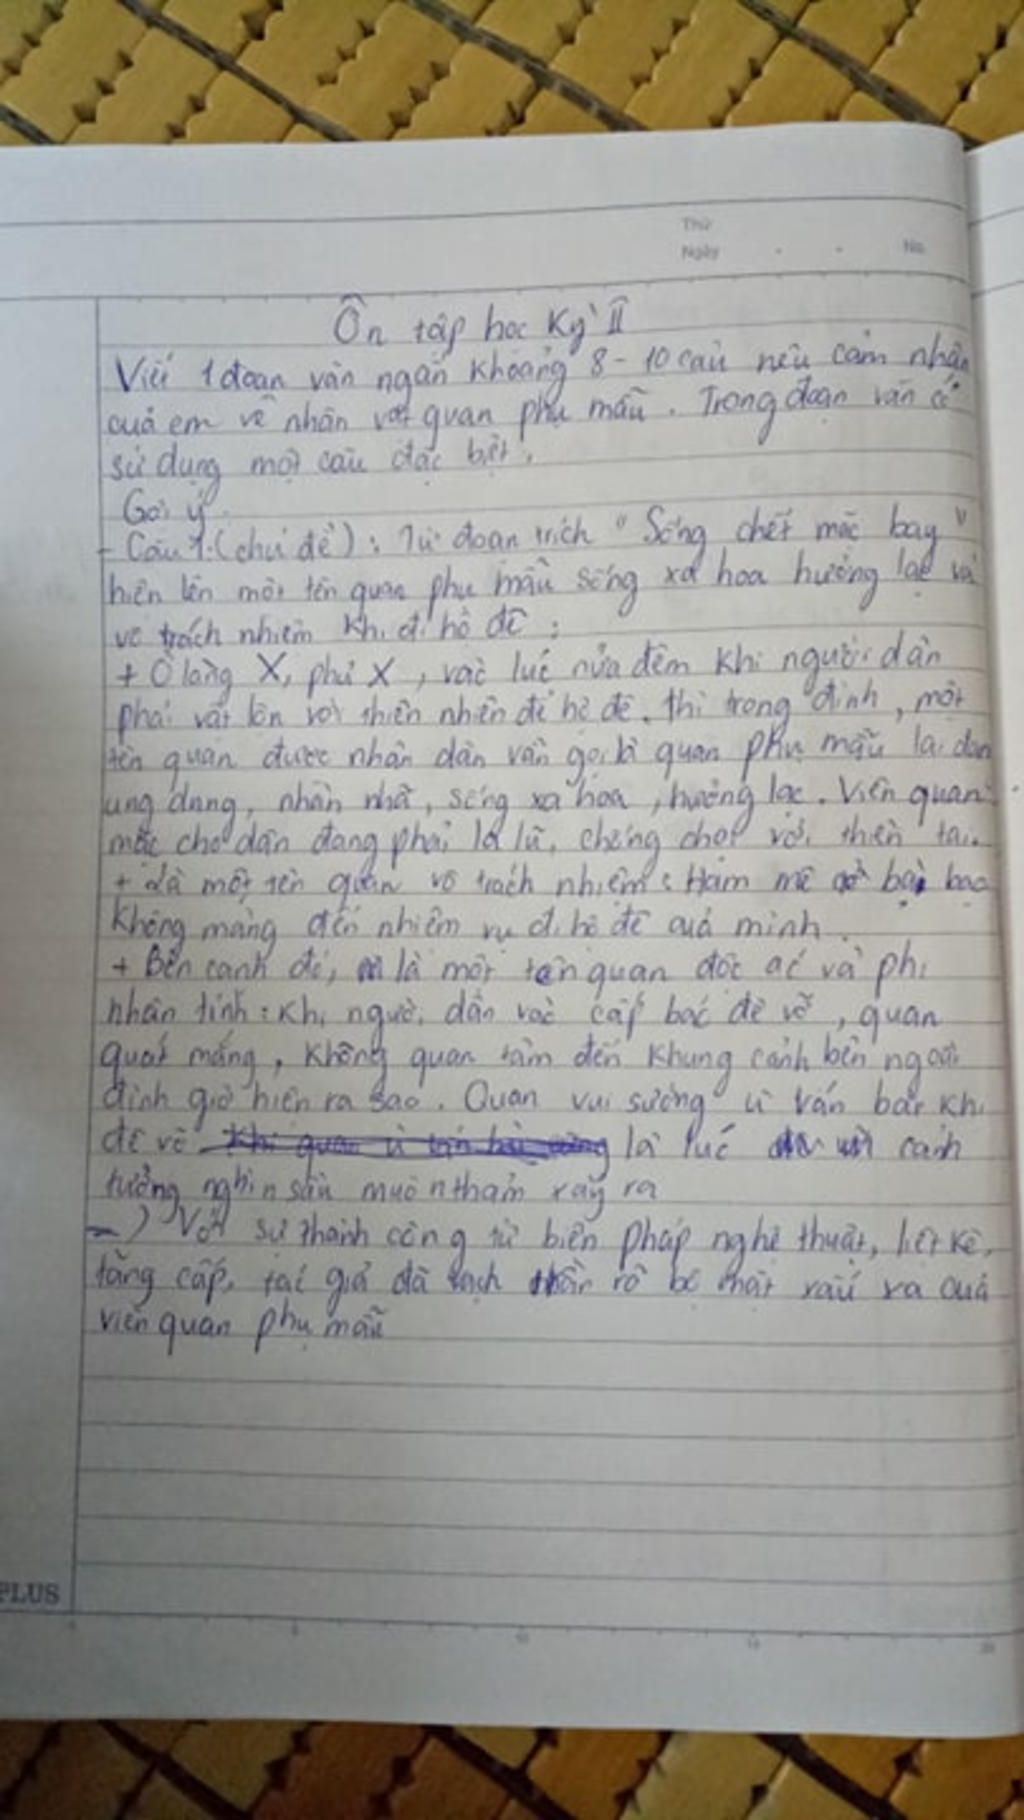 Thứ
Ngày . . No.
Ôn tập học Kỳ II
Viết 1 đoạn văn ngắn khoảng 8 - 10 câu nêu cảm nhận
quả em về nhân vật quan phụ mẫu. Trong đoạn văn có
sử dụng một câu đặc biệt.
Gợi ý
- Câu 1:(chủ đề): Từ đoạn trích "Sống chết mặc bay"
hiện lên một tên quan phụ mẫu sống xa hoa hưởng lạc và
vô trách nhiệm khi đi hộ đê:
+ Ở làng X, phủ X, vào lúc nửa đêm khi người dân
phải vật lộn với thiên nhiên để hộ đê. thì trong đình, một
tên quan được nhân dân vẫn gọi là quan phụ mẫu lại đan
ung dung, nhàn nhã, sống xa hoa, hưởng lạc. Viên quan
mặc cho dân đang phải là lũ, chống chọi với thiên tai.
+ Là một tên quan vô trách nhiệm: Ham mê bài bạc
không màng đến nhiệm vụ đi hộ đê quả mình.
+ Bên cạnh đó, là một tên quan độc ác và phi
nhân tính: Khi người dân vào cấp báo đê vỡ, quan
quát mắng, không quan tâm đến khung cảnh bên ngoài
đình giờ hiện ra sao. Quan vui sướng ù ván bài khi
đê vỡ là lúc cảnh
tưởng nghìn sầu muôn thảm xảy ra
-) Với sự thành công từ biện pháp nghệ thuật, liệt kê,
tăng cấp, tác giả đã rõ bộ mặt xấu xa quả
viên quan phụ mẫu
PLUS